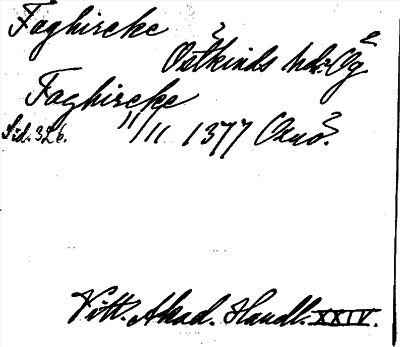 Faghircke
Östkinds hd: Ög
Faghircke
Sid. 326. 11/11 1377 Ornö.
Vitt. Akad. Handl. XXIV.